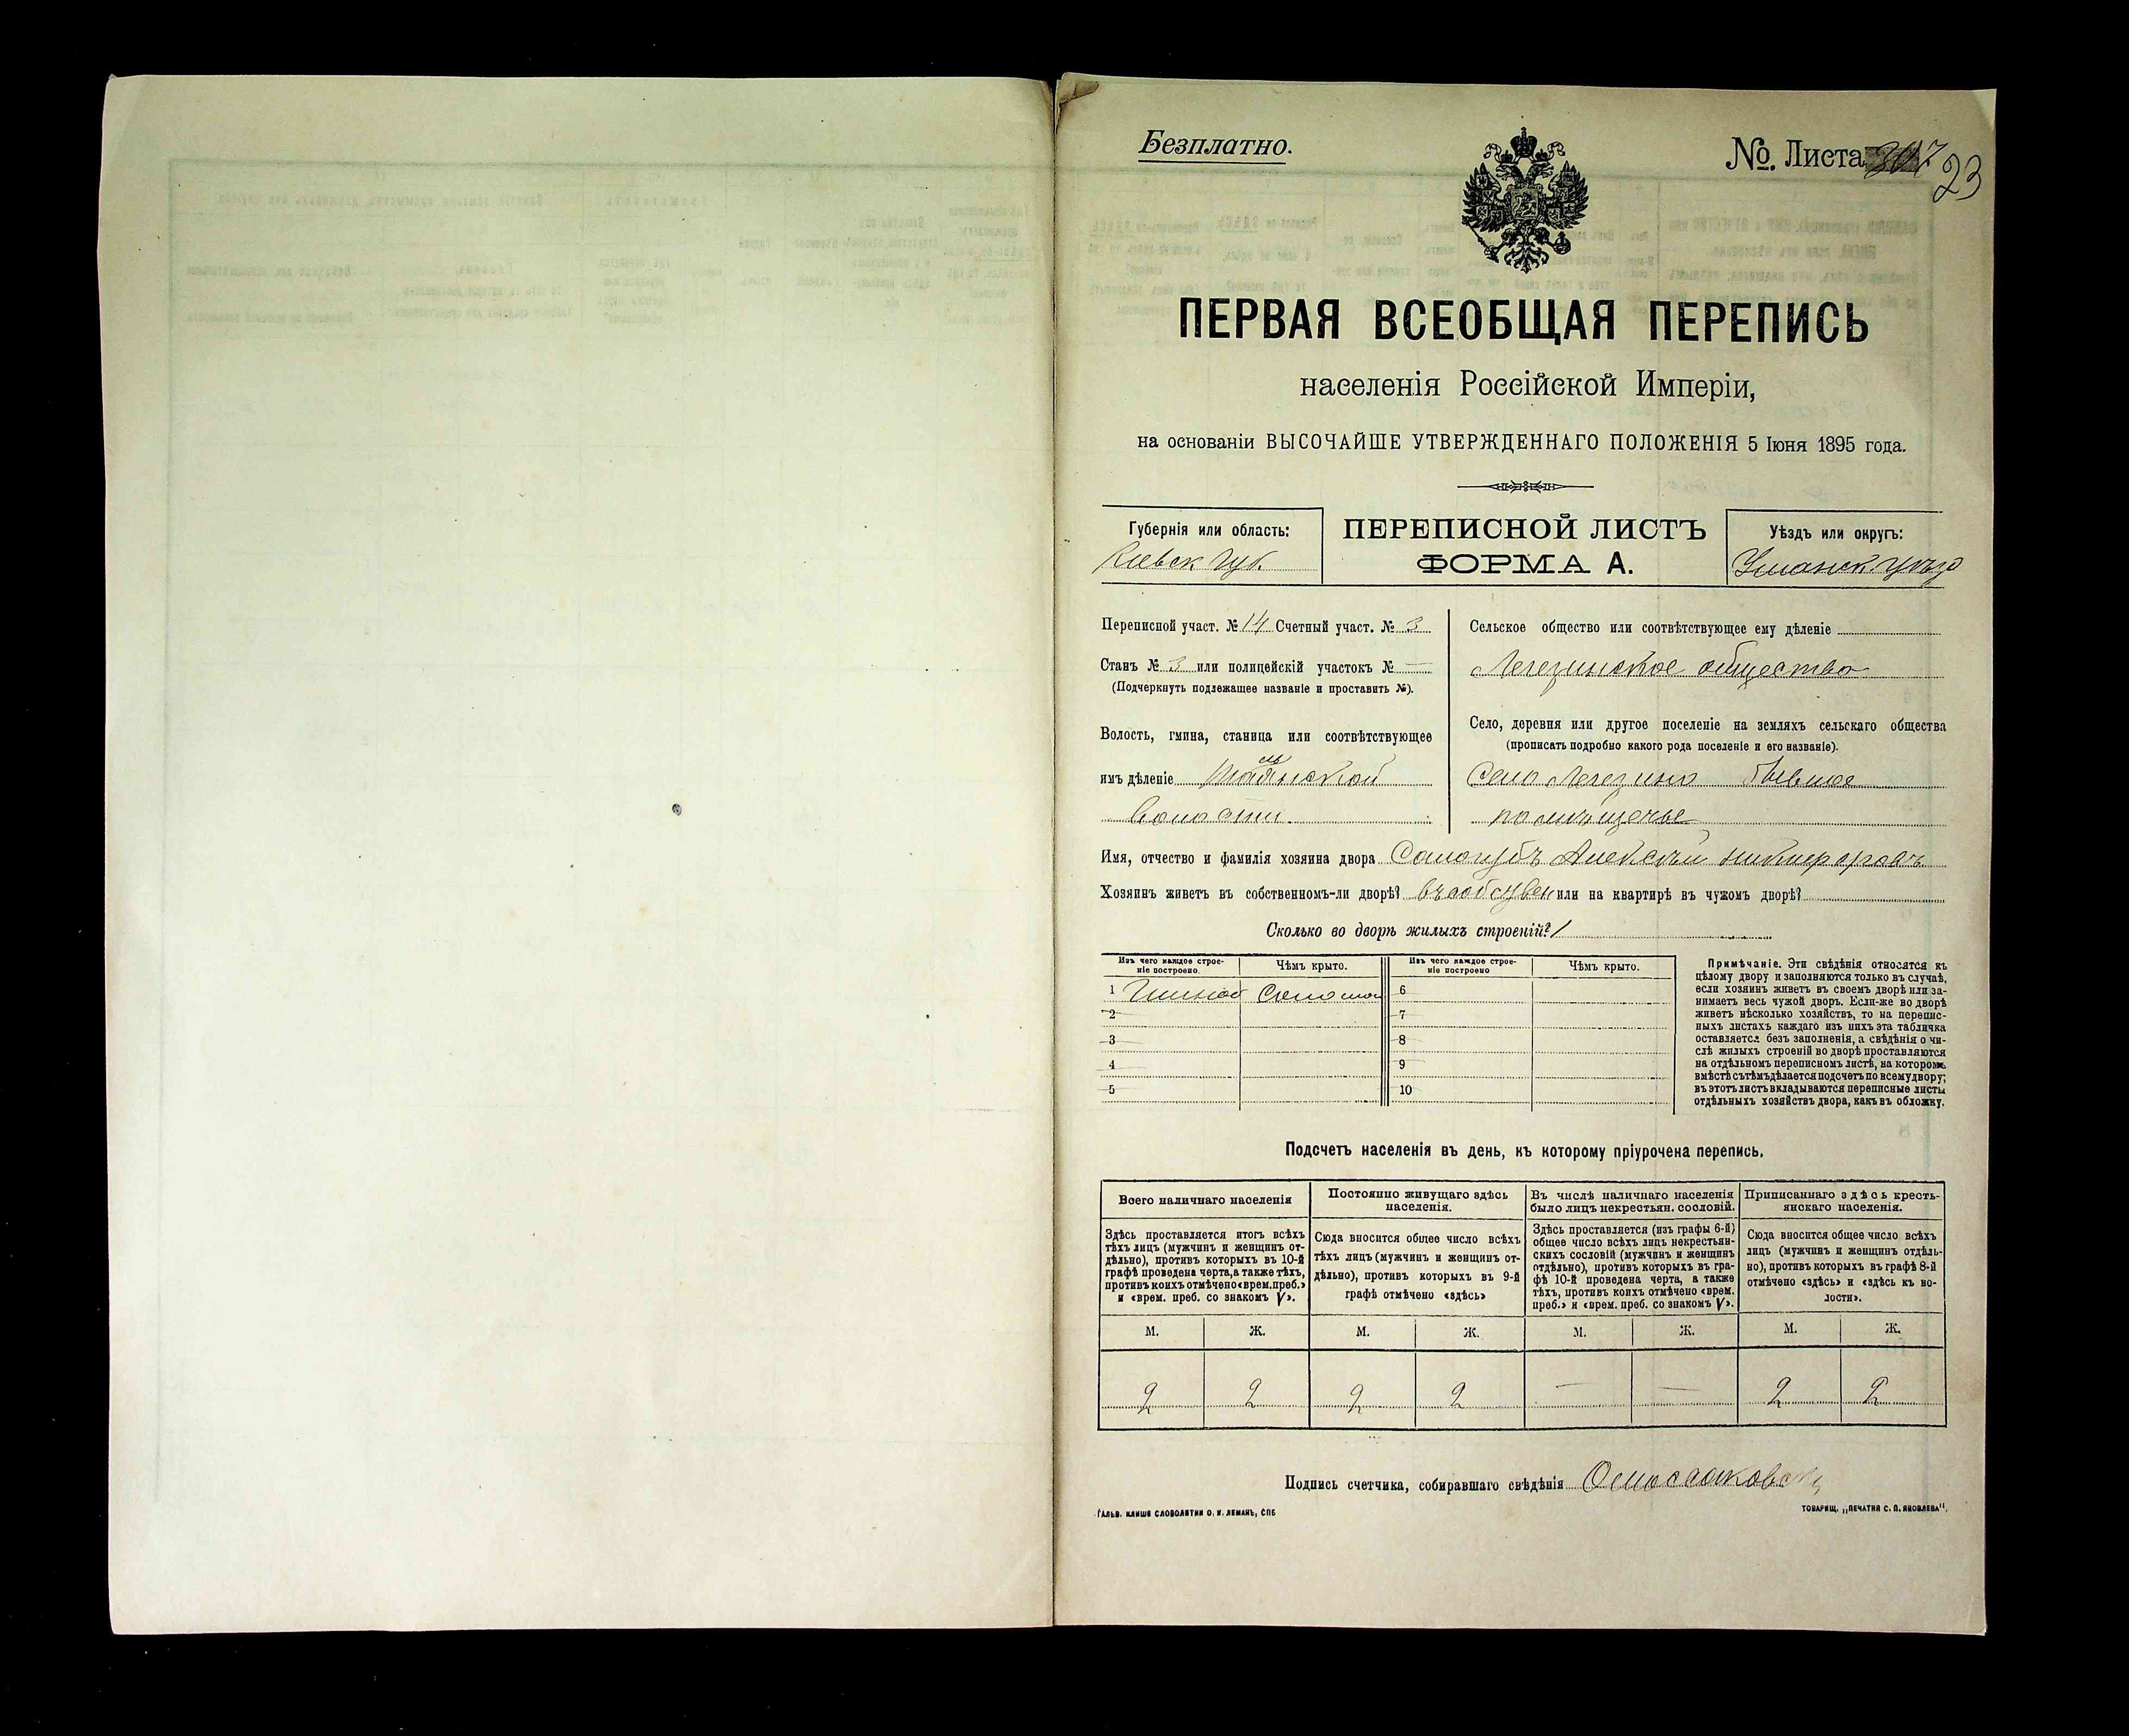 Безплатно.
№. Листа 23
ПЕРВАЯ ВСЕОБЩАЯ ПЕРЕПИСЬ
населенія Россійской Имперіи,
на основаніи ВЫСОЧАЙШЕ УТВЕРЖДЕННАГО ПОЛОЖЕНІЯ 5 Іюня 1895 года.
Губернія или область:
Киевск губ.
ПЕРЕПИСНОЙ ЛИСТЪ
ФОРМА А.
Уѣздъ или округъ:
Уманск. уѣзд
Переписной участ. № 14 Счетный участ. № 3
Станъ № 3 или полицейскій участокъ № —
(Подчеркнуть подлежащее названіе и проставить №).
Волость, гмина, станица или соотвѣтствующее
имъ дѣленіе
Волости
Сельское общество или соотвѣтствующее ему дѣленіе
Легезинское общество
Село, деревня или другое поселеніе на земляхъ сельскаго общества
(прописать подробно какого рода поселеніе и его названіе).
Село Легезино бывшое
помѣщечье
Имя, отчество и фамилія хозяина двора Алексѣй
Хозяинъ живетъ въ собственномъ-ли дворѣ? или на квартирѣ въ чужомъ дворѣ?
Сколько во дворѣ жилыхъ строеній? 1
Изъ чего каждое строе-
ніе построено.
Чѣмъ крыто.
Изъ чего каждое строе-
ніе построено
Чѣмъ крыто.
1 Глиной Соломой 6
2 7
3 8
4 9
5 10
Примѣчаніе. Эти свѣдѣнія относятся къ
цѣлому двору и заполняются только въ случаѣ,
если хозяинъ живетъ въ своемъ дворѣ или за-
нимаетъ весь чужой дворъ. Если-же во дворѣ
живетъ нѣсколько хозяйствъ, то на перепис-
ныхъ листахъ каждаго изъ нихъ эта табличка
оставляется безъ заполненія, а свѣдѣнія о чи-
слѣ жилыхъ строеній во дворѣ проставляются
на отдѣльномъ переписномъ листѣ, на которомъ
вмѣстѣ съ тѣмъ дѣлается подсчетъ по всему двору;
въ этотъ листъ вкладываются переписные листы
отдѣльныхъ хозяйствъ двора, какъ въ обложку.
Подсчетъ населенія въ день, къ которому пріурочена перепись.
Всего наличнаго населенія
Постоянно живущаго здѣсь
населенія.
Въ числѣ наличнаго населенія
было лицъ некрестьян. сословій.
Приписаннаго здѣсь кресть-
янскаго населенія.
Здѣсь проставляется итогъ всѣхъ
тѣхъ лицъ (мужчинъ и женщинъ от-
дѣльно), противъ которыхъ въ 10-й
графѣ проведена черта, а также тѣхъ,
противъ коихъ отмѣчено «врем. преб.»
и «врем. преб. со знакомъ V».
Сюда вносится общее число всѣхъ
тѣхъ лицъ (мужчинъ и женщинъ от-
дѣльно), противъ которыхъ въ 9-й
графѣ отмѣчено «здѣсь»
Здѣсь проставляется (изъ графы 6-й)
общее число всѣхъ лицъ некрестьян-
скихъ сословій (мужчинъ и женщинъ
отдѣльно), противъ которыхъ въ гра-
фѣ 10-й проведена черта, а также
тѣхъ, противъ коихъ отмѣчено «врем.
преб.» и «врем. преб. со знакомъ V».
Сюда вносится общее число всѣхъ
лицъ (мужчинъ и женщинъ отдѣль-
но), противъ которыхъ въ графѣ 8-й
отмѣчено «здѣсь» и «здѣсь къ во-
лости».
М. Ж. М. Ж. М. Ж. М. Ж.
2 2 2 2 — — 2 2
Подпись счетчика, собиравшаго свѣдѣнія
ГАЛЬВ. КЛИШЕ СЛОВОЛИТНИ О. И. ЛЕМАНЪ, СПБ
ТОВАРИЩ. „ПЕЧАТНЯ С. П. ЯКОВЛЕВА".